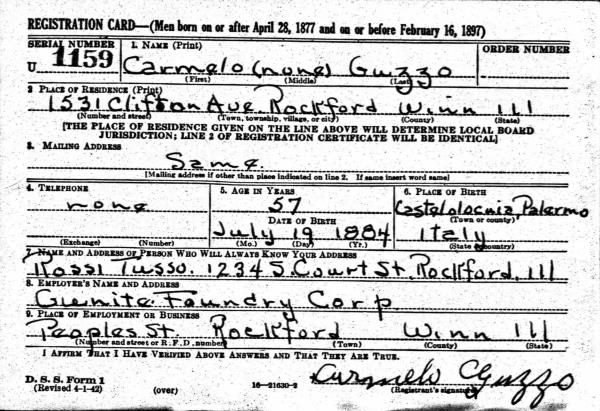 REGISTRATION CARD—(Men born on or after April 28, 1877 and on or before February 16, 1897)
SERIAL NUMBER 1. NAME (Print) ORDER NUMBER
U 1159 Carmelo (none) Guzzo
(First) (Middle) (Last)
2. PLACE OF RESIDENCE (Print)
1531 Clifton Ave. Rockford Winn Ill
(Number and street) (Town, township, village, or city) (County) (State)
[THE PLACE OF RESIDENCE GIVEN ON THE LINE ABOVE WILL DETERMINE LOCAL BOARD
JURISDICTION; LINE 2 OF REGISTRATION CERTIFICATE WILL BE IDENTICAL]
3. MAILING ADDRESS
Same.
[Mailing address if other than place indicated on line 2. If same insert word same]
4. TELEPHONE 5. AGE IN YEARS 6. PLACE OF BIRTH
none 57 Palermo
DATE OF BIRTH (Town or county)
July 19 1884 Italy
(Exchange) (Number) (Mo.) (Day) (Yr.) (State or country)
7. NAME AND ADDRESS OF PERSON WHO WILL ALWAYS KNOW YOUR ADDRESS
Rossi Tusso. 1234 S. Court St. Rockford, Ill
8. EMPLOYER'S NAME AND ADDRESS
Gunite Foundry Corp
9. PLACE OF EMPLOYMENT OR BUSINESS
Peoples St. Rockford Winn Ill
(Number and street or R. F. D. number) (Town) (County) (State)
I AFFIRM THAT I HAVE VERIFIED ABOVE ANSWERS AND THAT THEY ARE TRUE.
D. S. S. Form 1
(Revised 4-1-42) (over) 16—21630-2 Carmelo Guzzo
(Registrant's signature)